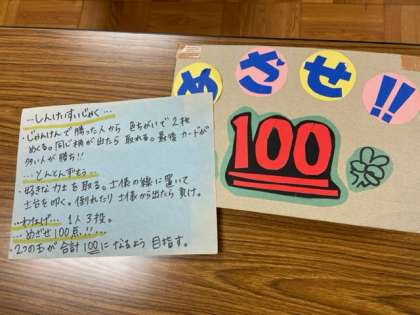 …しんけいすいじゃく…
・じゃんけんで勝った人から 色ちがいで2枚
めくる。同じ柄が出たら 取れる。最後 カードが
多い人が勝ち!!
…とんとんずもう…
・好きな力士を取る。土俵の線に置いて
土台を叩く。倒れたり 土俵から出たら 負け。
…わなげ… 1人3投。
…めざせ100点!!…
・2つの玉が 合計100に なるよう 目指す。
めざせ!!
100